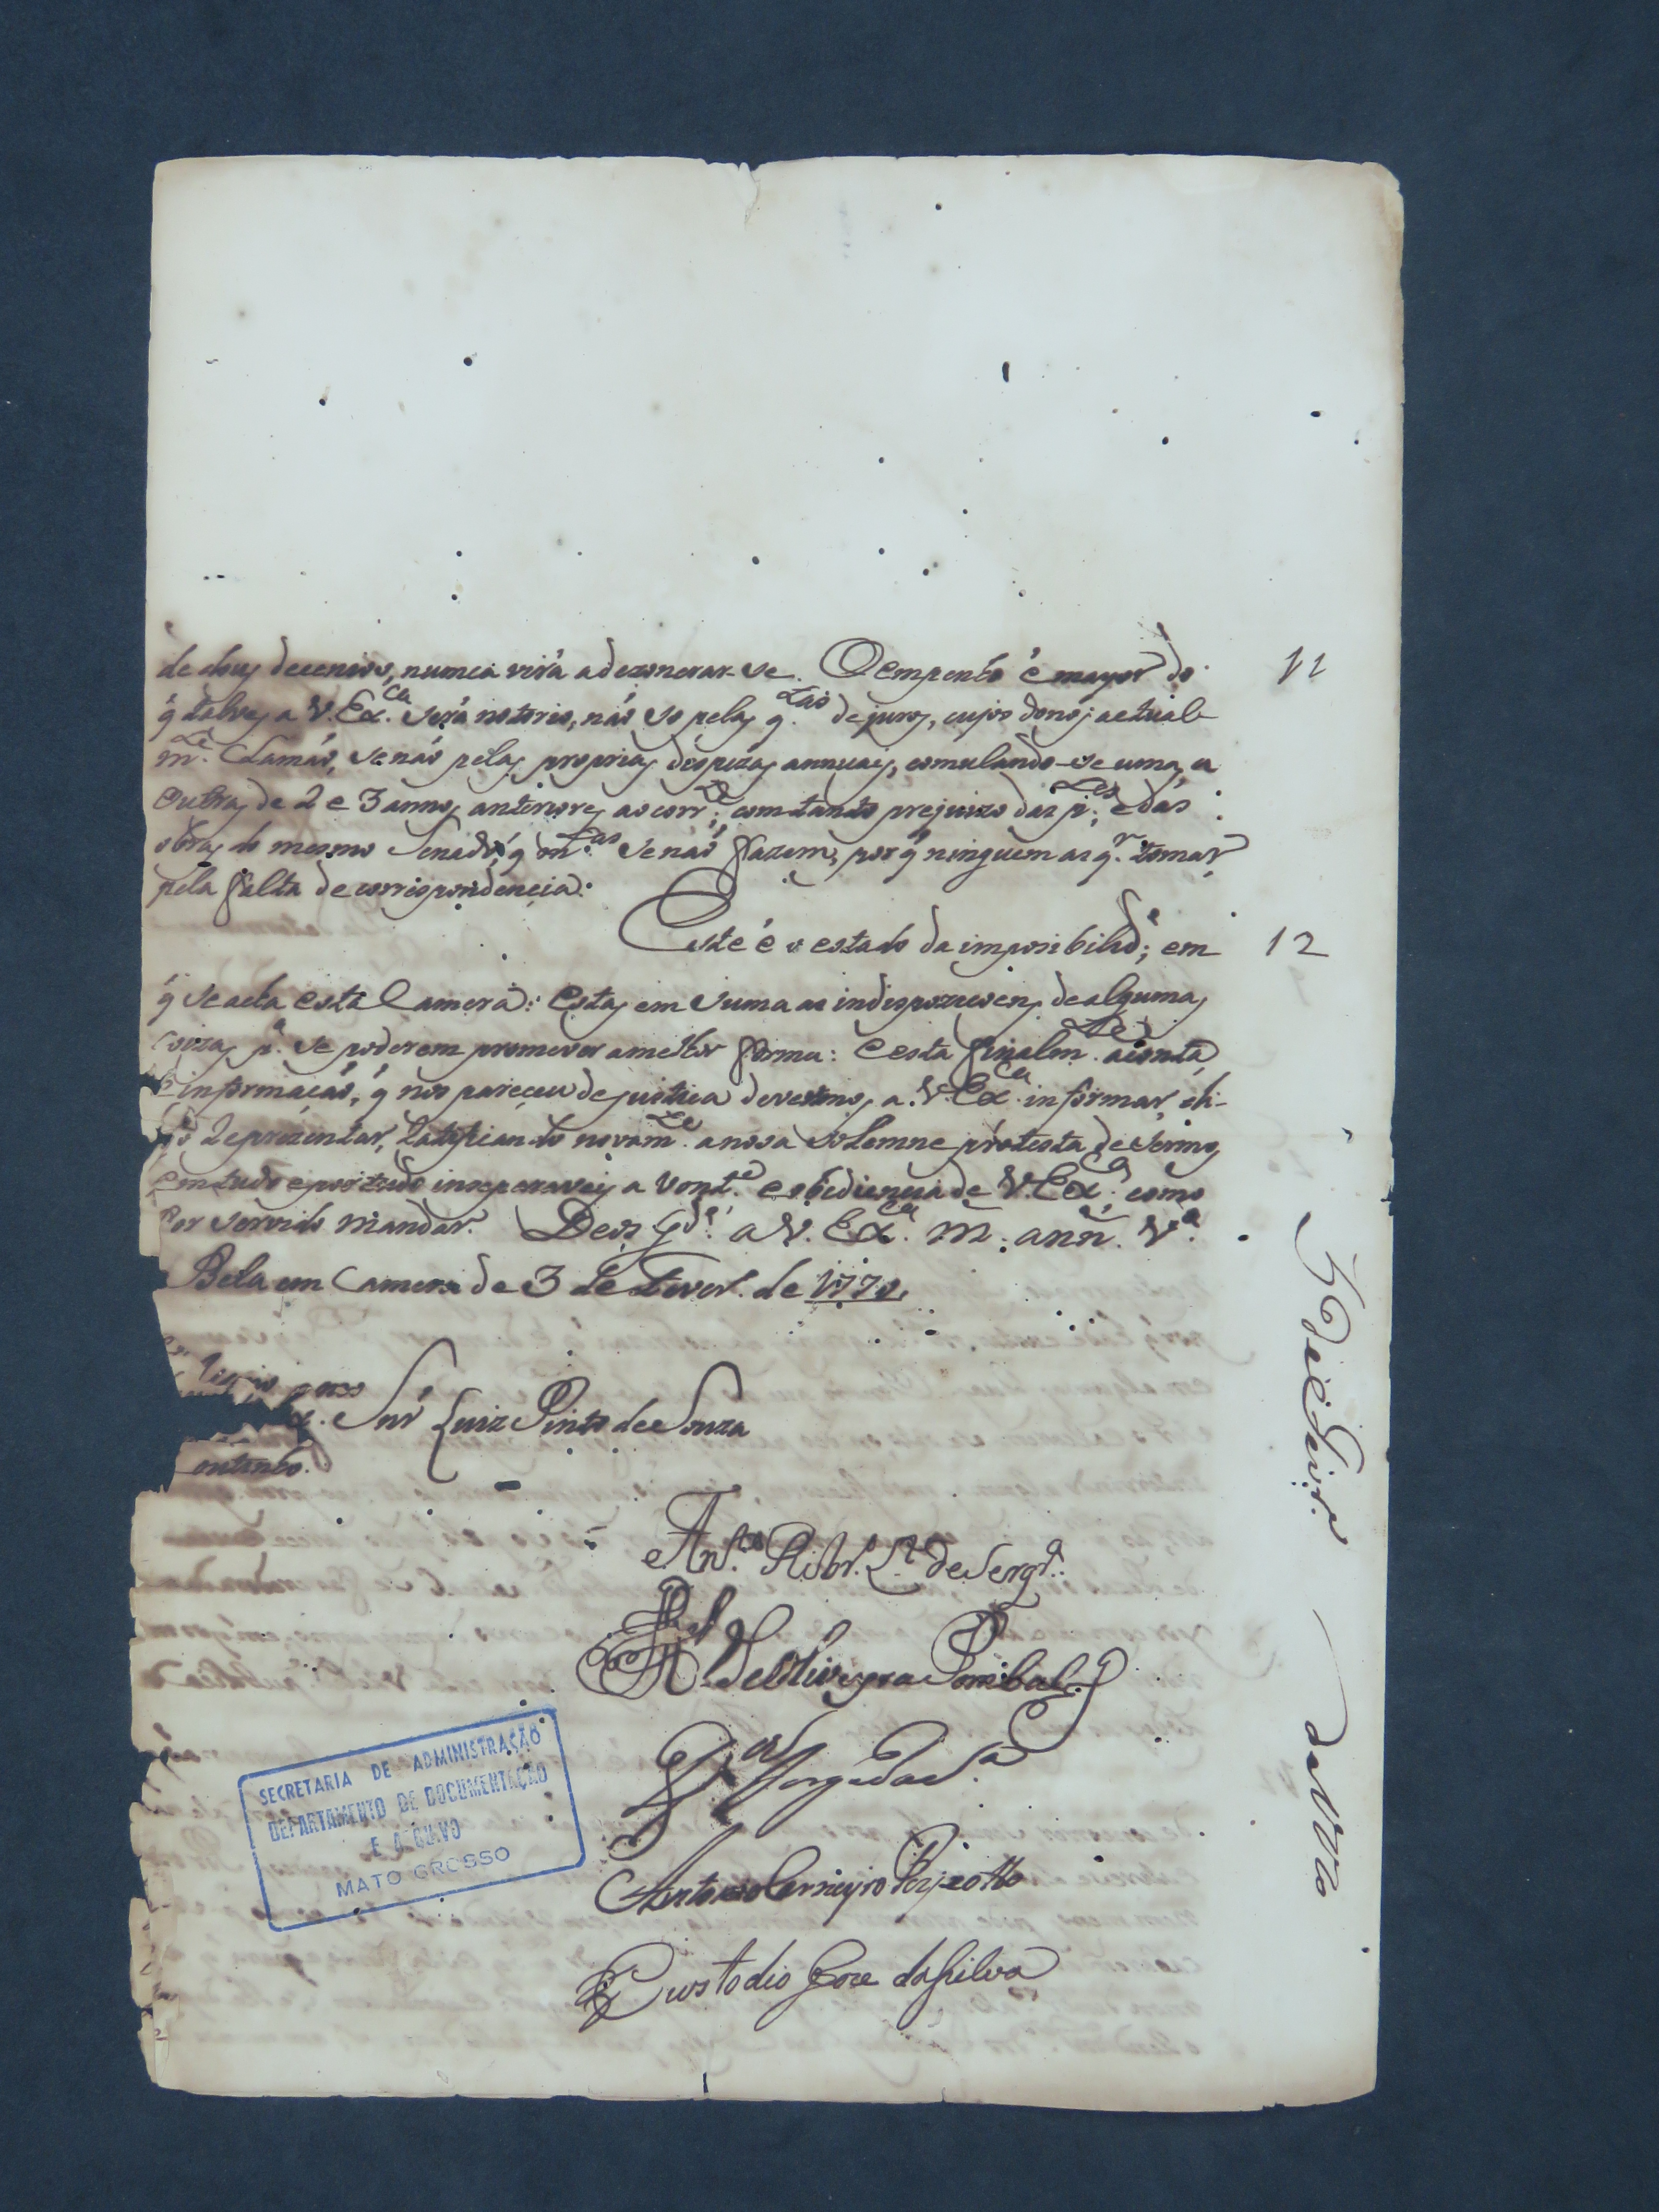 de dous decenios, numca virá adezonerar-se. Oempenho é mayor do 11
q̃ talves a V. Ex.ca será notorio, nás so pelas q.tas dejuros, cujos donos actual-
m.te Clamás, senás pelas proprias despezas annuais, comulando-se umas, a
outras de 2 e 3 annos anteriores ao corr.te; comtanto prejuizo das p.tes, e das
obras do mesmo Senado, q̃ m.tas se nás fazem, por q̃ ninguem as q.r tomar,
pela falta de correspondencia.
Este é o estado da imposibilid.e; em 12
q̃ se acha esta Camera: Estas em suma as indispoziçoens dealgumas
coizas p.a se poderem promover amelhor forma: E esta finalm.te aconta,
e informaçás, q̃ nos pareçeu dejustica devermos a V. Ex.ca informar, e
Reprezentar, Ratificando novam.te anosa solemne protesta desermos
em tudo eportudo inseparaveis a vont.e e obediencia de V. Ex.ca, como
for servido mandar. Deos g.de a V. Ex.ca m. ann. V.a
Bela em Camera de 3 de Fever. de 1770.
Snr Luiz Pinto de Souza
outinho.
Ant.o Ribr.o
de Oliveyra Pombal
Jorge da S.a
Antonio Carneyro Peyxotto
Custodio Joze da Silva
SECRETARIA DE ADMINISTRAÇÃO
DEPARTAMENTO DE DOCUMENTAÇÃO
E ARQUIVO
MATO GROSSO